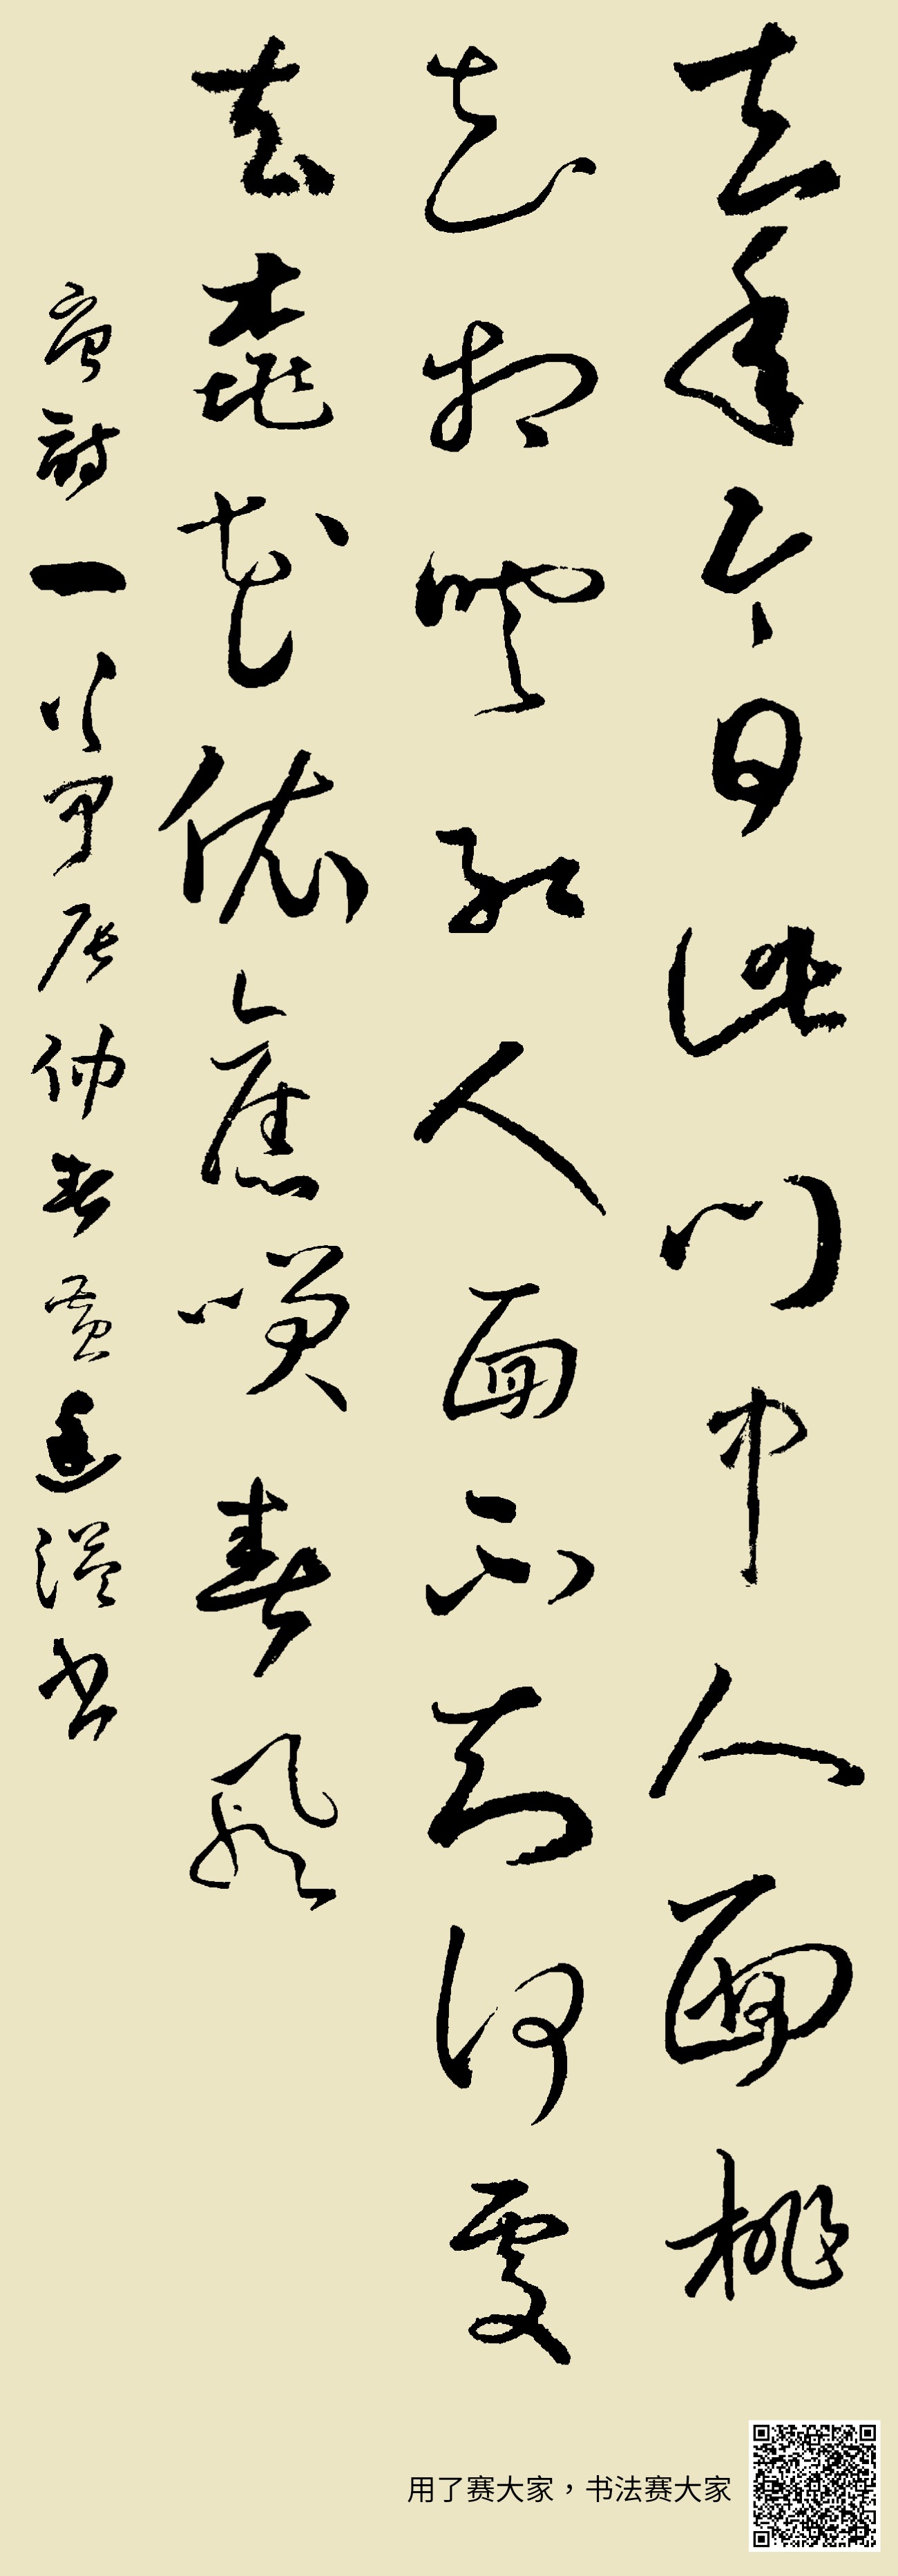 去年今日此門中人面桃
花相映紅人面不知何處
去桃花依舊笑春風
唐詩一首甲辰仲春黄溢书
用了赛大家，书法赛大家